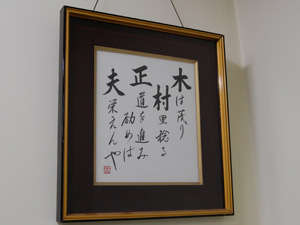 木は茂り
村里稔る
正道を進み
励めば
夫栄えんや